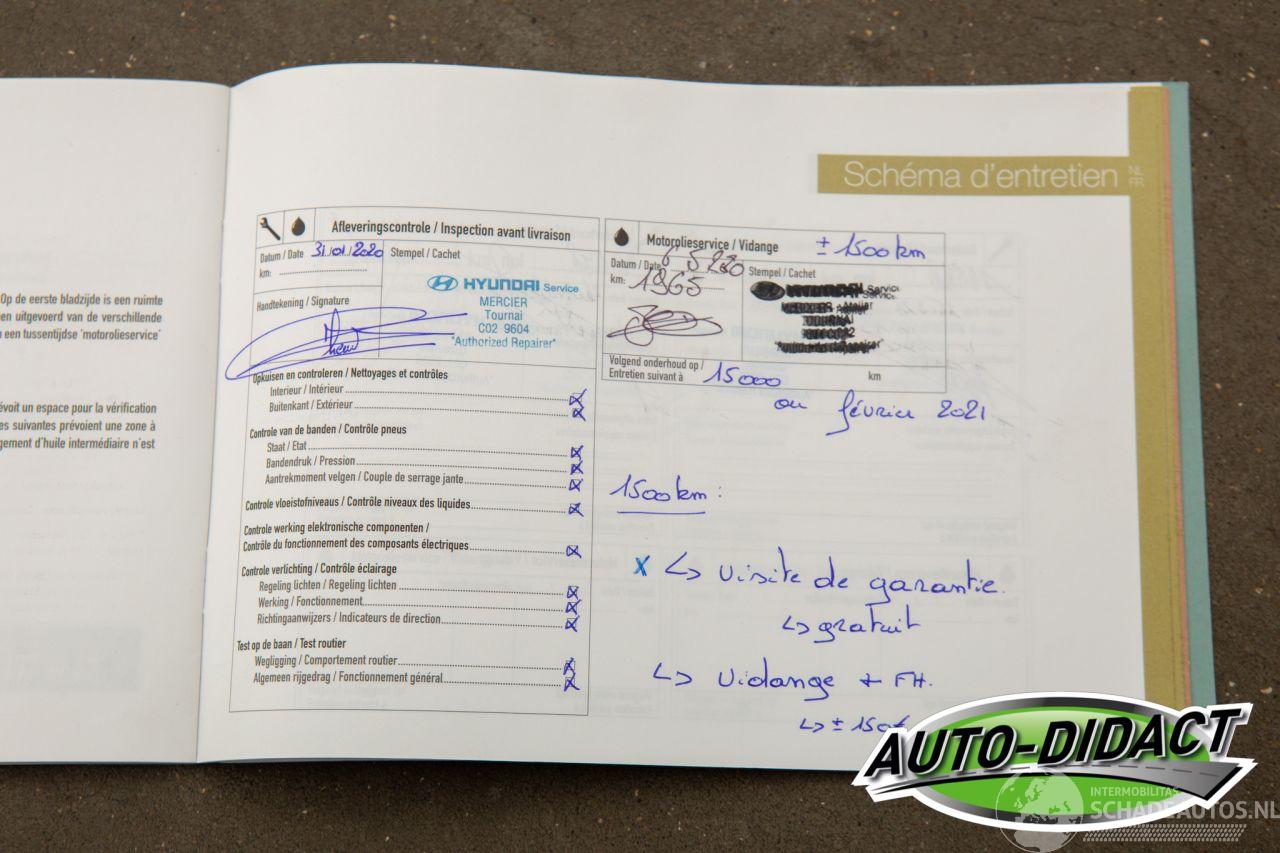 Op de eerste bladzijde is een ruimte
en uitgevoerd van de verschillende
een tussentijdse 'motorolieservice'
évoit un espace pour la vérification
es suivantes prévoient une zone à
gement d'huile intermédiaire n'est
Schéma d'entretien NL
FR
Afleveringscontrole / Inspection avant livraison
Datum / Date 31/01/2020
km:
Stempel / Cachet
Handtekening / Signature
HYUNDAI Service
MERCIER
Tournai
C02 9604
"Authorized Repairer"
Opkuisen en controleren / Nettoyages et contrôles
Interieur / Intérieur
Buitenkant / Extérieur
Controle van de banden / Contrôle pneus
Staat / Etat
Bandendruk / Pression
Aantrekmoment velgen / Couple de serrage jante
Controle vloeistofniveaus / Contrôle niveaux des liquides
Controle werking elektronische componenten /
Contrôle du fonctionnement des composants électriques
Controle verlichting / Contrôle éclairage
Regeling lichten / Regeling lichten
Werking / Fonctionnement
Richtingaanwijzers / Indicateurs de direction
Test op de baan / Test routier
Wegligging / Comportement routier
Algemeen rijgedrag / Fonctionnement général
Motorolieservice / Vidange ± 1500 km
Datum / Date
km: 1965
Stempel / Cachet
HYUNDAI Service
TOURNAI
Volgend onderhoud op /
Entretien suivant à 15000 km
ou février 2021
1500 km :
X ↳ Visite de garantie.
↳ gratuit
↳ Vidange + FH.
↳ ± 150€
AUTO-DIDACT
INTERMOBILITAS
SCHADEAUTOS.NL